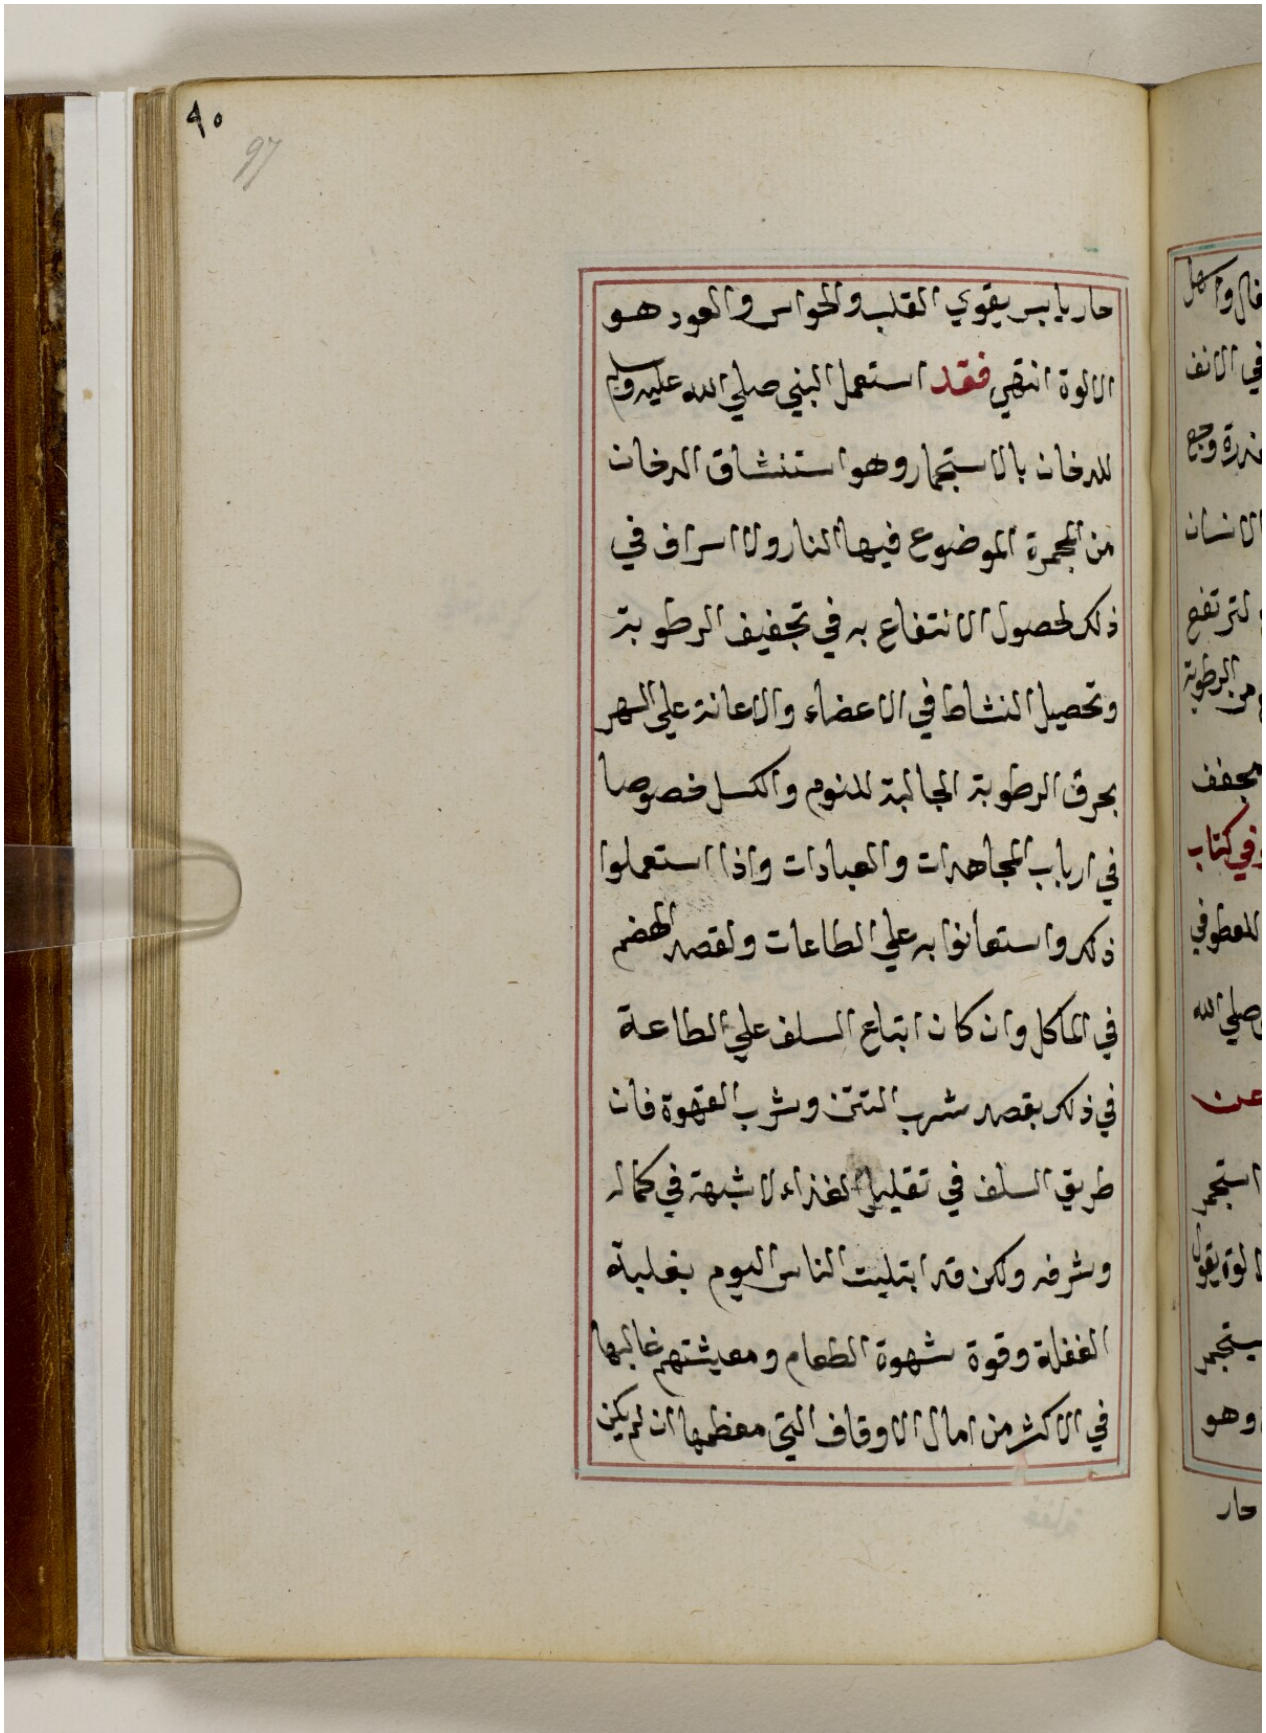 ٩٠
97
حار يابس يقوي القلب والحواس والعود هو
الالوة انتهي فقد استعمل النبي صلي الله عليه وسلم
للدخان بالاستجمار وهو استنشاق الدخان
من المجمرة الموضوع فيها النار ولا اسراف في
ذلك لحصول الانتفاع به في تجفيف الرطوبة
وتحصيل النشاط في الاعضاء والاعانة علي السهر
بحرق الرطوبة الجالبة للنوم والكسل خصوصا
في ارباب المجاهدات والعبادات واذا استعملوا
ذلك واستعانوا به علي الطاعات ولقصد الهضم
في الماكل وان كان اتباع السلف علي الطاعة
في ذلك بقصد شرب التتن وشرب القهوة فان
طريق السلف في تقليل الغذاء لا شبهة في كماله
وشرفه ولكن قد ابتليت الناس اليوم بغلبة
الغفلة وقوة شهوة الطعام ومعيشتهم غالبها
في الاكثر من امال الاوقاف التي معظمها ان لم يكن
في الانف
الانسان
لترتفع
من الرطوبة
مجفف
وفي كتاب
صلي الله
عن
استجمر
يستجمر
وهو
حار